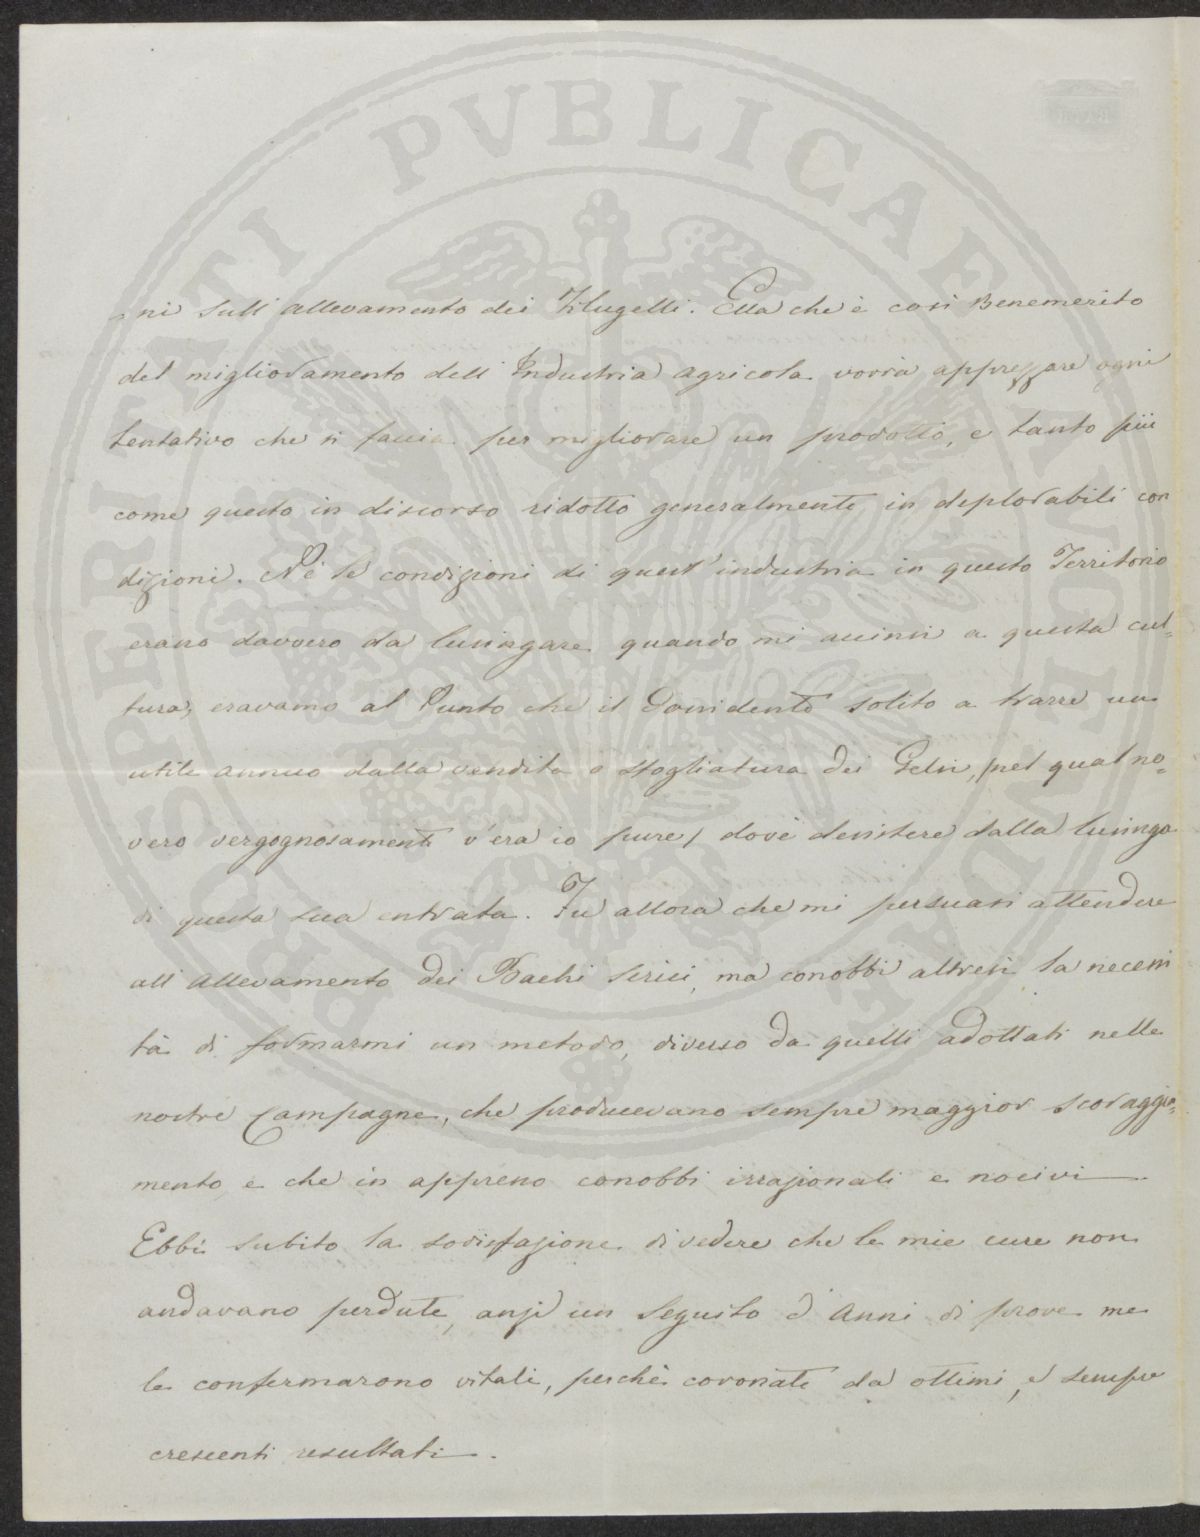 PROSPERITATI PVBLICAE AVGENDAE
ni sull'allevamento dei Filugelli. Ella che è così Benemerito
del miglioramento dell'Industria agricola vorrà apprezzare ogni
tentativo che si faccia per migliorare un prodotto, e tanto più
come questo in discorso ridotto generalmente in deplorabili con
dizioni. Nè le condizioni di quest'industria in questo Territorio
erano davvero da lusingare quando mi accinsi a questa cul=
tura, eravamo al Punto che il Possidente solito a trarre un
utile annuo dalla vendita o sfogliatura dei Gelsi, (nel qual no=
vero vergognosamente v'era io pure) dovè desistere dalla lusinga
di questa sua entrata. Fu allora che mi persuasi attendere
all'allevamento dei Bachi serici, ma conobbi altresì la necessi
tà di formarmi un metodo, diverso da quelli adottati nelle
nostre Campagne, che producevano sempre maggior scoraggia=
mento e che in appresso conobbi irrazionali e nocivi
Ebbi subito la sodisfazione di vedere che le mie cure non
andavano perdute, anzi un seguito d'anni di prove me
le confermarono vitali, perchè coronate da ottimi, e sempre
crescenti resultati.